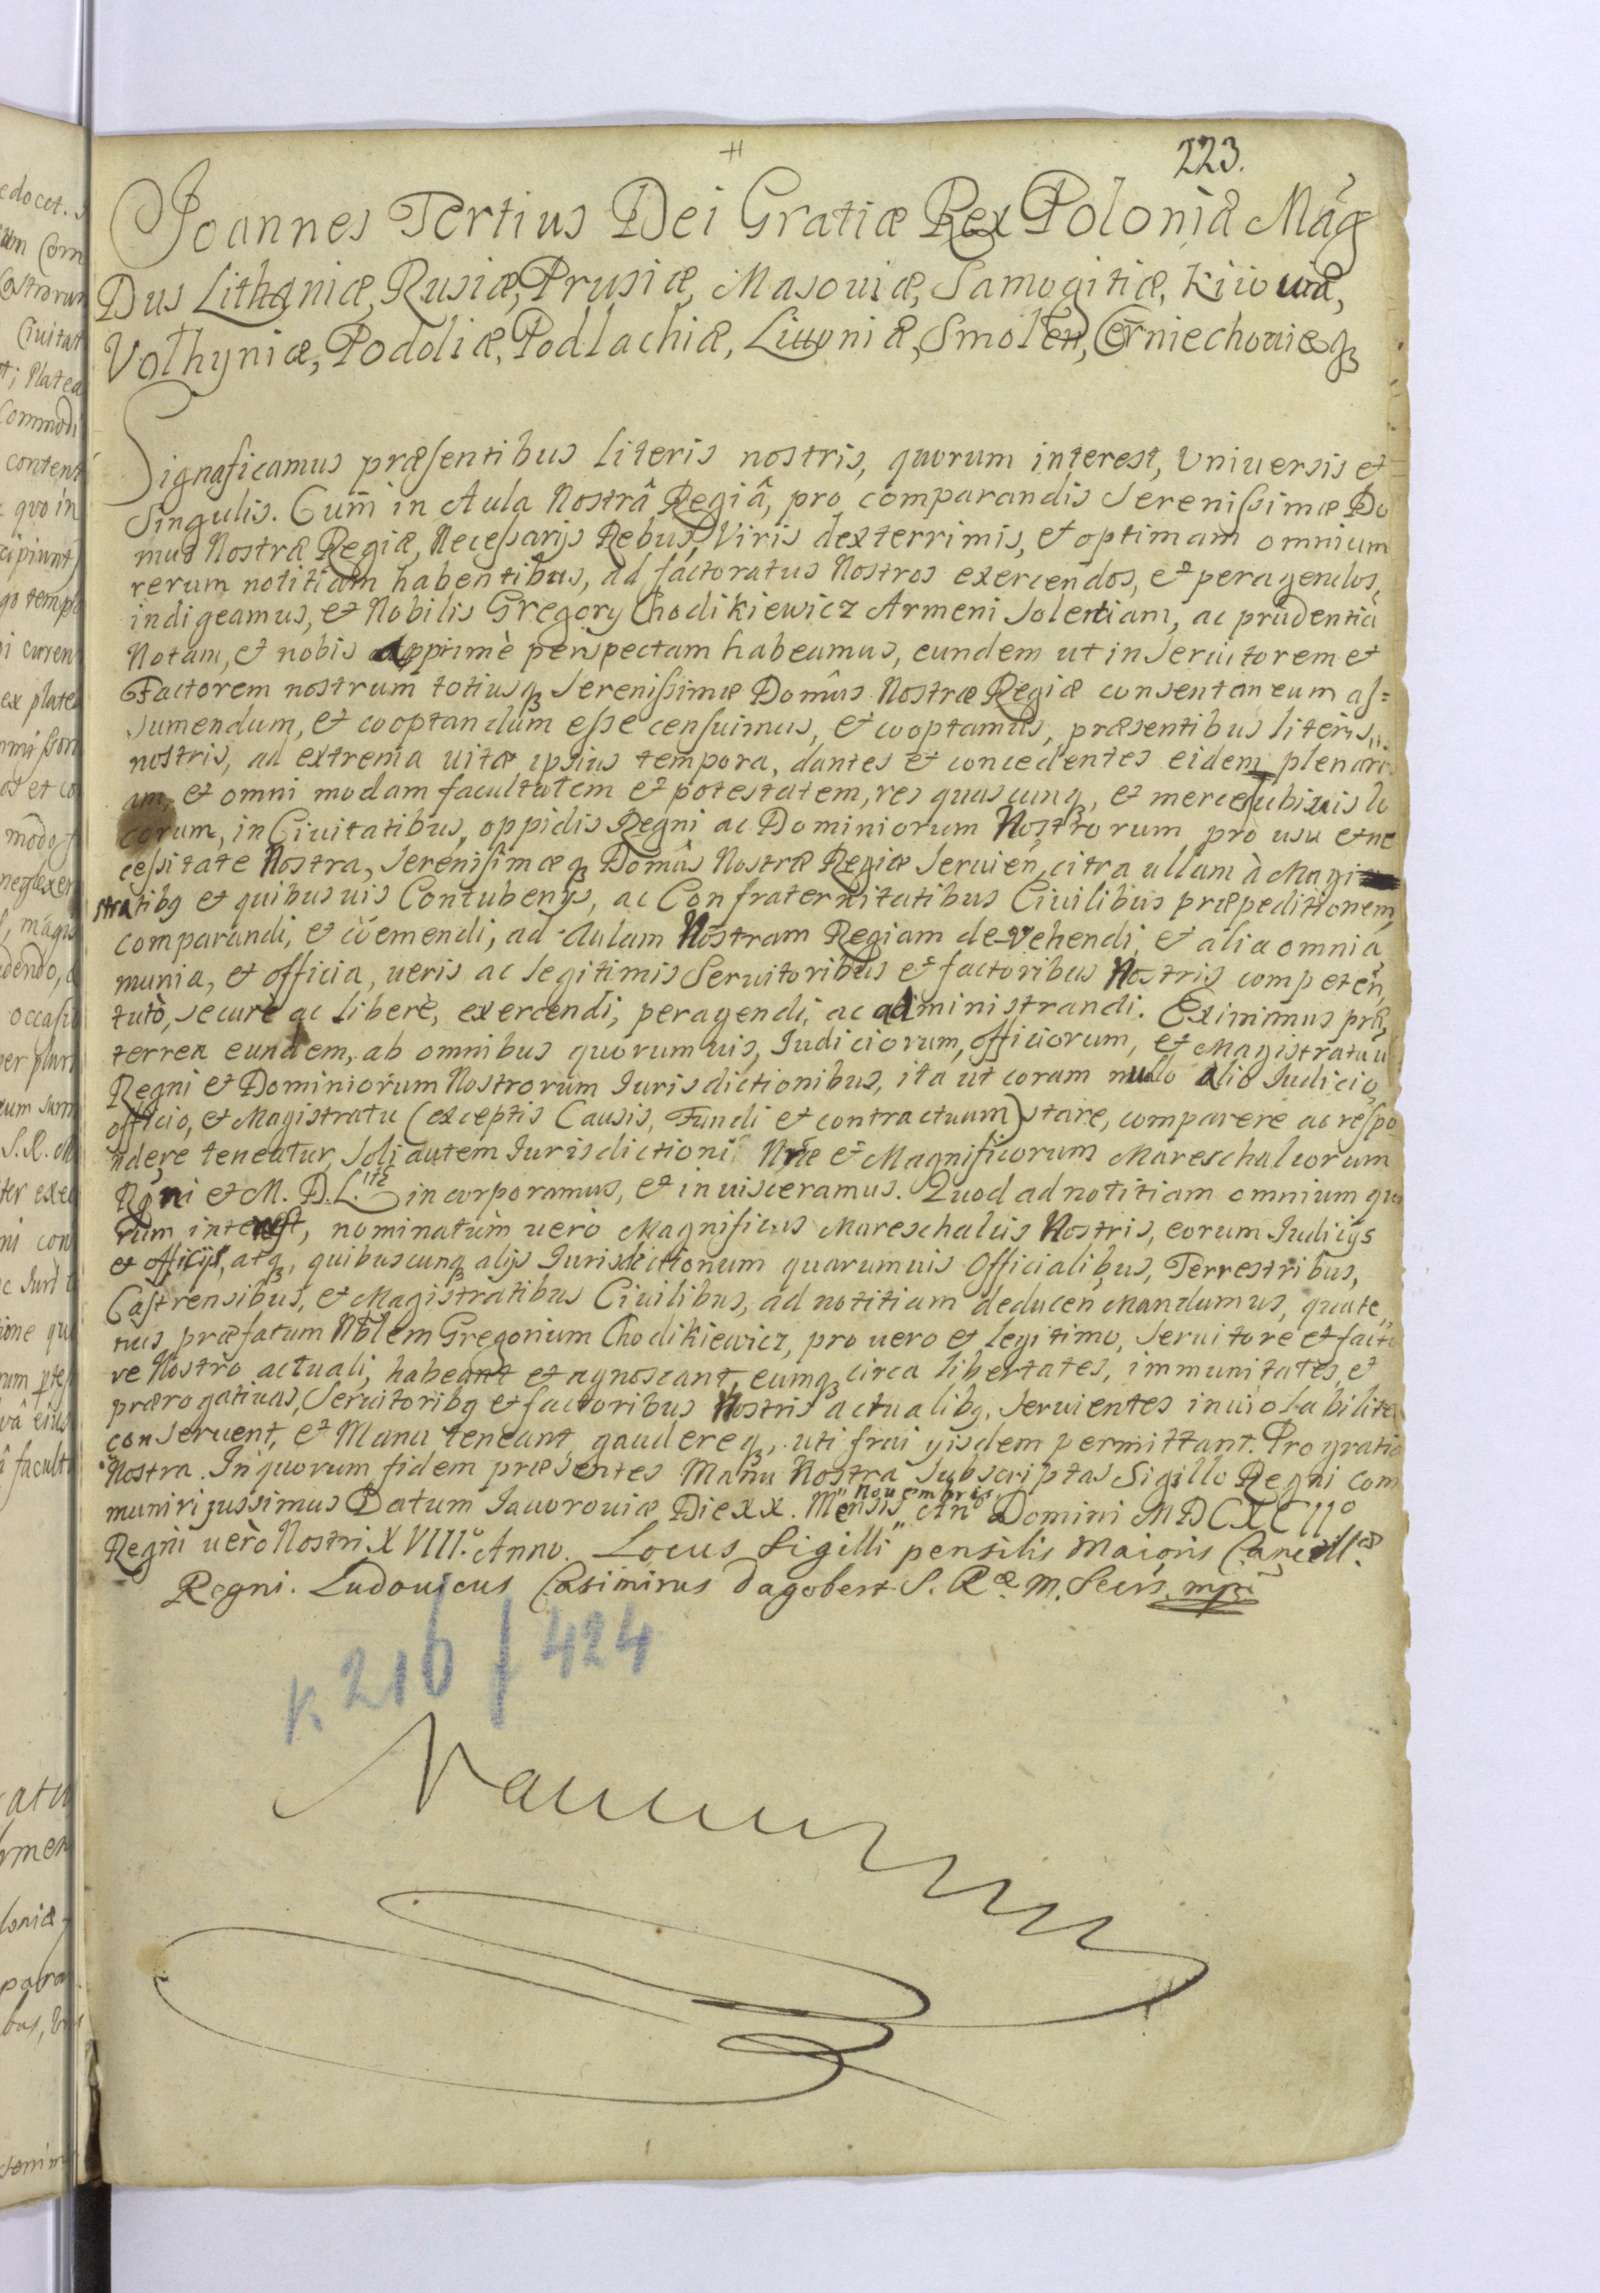 223.
Joannes Tertius Dei Gratiæ Rex Poloniæ Mag
Dus Lithaniæ, Rusiæ, Prusiæ, Masouiæ, Samogitiæ, Kiiouiæ,
Volhyniæ, Podoliæ, Podlachiæ, Liuoniæ, Smolen, Cerniechouiæqꝫ
Signaficamus præsentibus literis nostris, quorum interest, Uniuersis et
Singulis. Cum in Aula Nostrâ Regiâ, pro comparandis Serenissimæ Do
mus Nostræ Regiæ, Necessarijs Rebus, Viris dexterrimis, et optimam omnium
rerum notitiam habentibus, ad factoratus Nostros exercendos, et peragendos,
indigeamus, et Nobilis Gregory Chodikiewicz Armeni Solertiam, ac prudentia
Notam, et nobis apprimè perspectam habeamus, eundem ut in Seruitorem et
Factorem nostrum totiusqꝫ Serenissimæ Domûs Nostræ Regiæ consentaneum as=
sumendum, et cooptandum esse censuimus, et cooptamus, præsentibus literis
nostris, ad extrema uitæ ipsius tempora, dantes et concedentes eidem plenari
am, et omni modam facultatem et potestatem, res quascunqꝫ, et merces ubiuis lo
corum, in Ciuitatibus, oppidis Regni ac Dominiorum Nostrorum, pro usu et ne
cessitate Nostra, Serenissimæqꝫ Domûs Nostræ Regiæ Seruien, citra ullam à Magi
stratibꝫ et quibusuis Contubenijs, ac Confraternitatibus Ciuilibus præpeditionem,
comparandi, et cöemendi, ad Aulam Nostram Regiam de-vehendi, et alia omnia,
munia, et officia, ueris ac legitimis Seruitoribus et factoribus Nostris competen,
tutò, securè ac liberè, exercendi, peragendi, ac administrandi. Eximimus præ,
terrea eundem, ab omnibus quorumuis, Iudiciorum, officiorum, et Magistratuu
Regni et Dominiorum Nostrorum Iurisdictionibus, ita ut coram nullo alio Iudicio,
officio, et Magistratu (exceptis Causis, Fundi et contractuum) stare, comparere ac respo
ndere teneatur, Soli autem Iurisdictioni Nræ et Magnificorum Mareschalcorum
Rgni et M. D. L.itæ incorporamus, et inuisceramus. Quod ad notitiam omnium quo
rum interest, nominatùm uerò Magnificis Mareschalcis Nostris, eorum Iudicijs
et officijs, atqꝫ, quibuscunqꝫ alijs Iurisdictionum quarumuis Officialibus, Terrestribus,
Castrensibus, et Magistratibus Ciuilibus, ad notitiam deducen Mandamus, quate,,
nus præfatum Nblem Gregorium Chodikiewicz, pro uero et legitimo, Seruitore et facto
re Nostro actuali, habeant et agnoscant, eumqꝫ circa libertates, immunitates, et
prærogatiuas, Seruitoribꝫ et factoribus Nostris actualibꝫ, Seruientes inuiolabiliter
conseruent, et Manu teneant, gaudereqꝫ, uti frui yisdem permittant. Pro gratia
Nostra. In quorum fidem præsentes Manu Nostra Subscriptas Sigillo Regni com
muniri jussimus Datum Iauorouiæ Die XX. Mensis Nouembris Ano Domini MDCXCIIo
Regni uerò Nostri XVIII.o Anno. Locus Sigilli pensilis Maioris Cancellæ
Regni. Ludouicus Casimirus Dagobert S. Ræ. M. Secrs. mpr
K 216 / 424